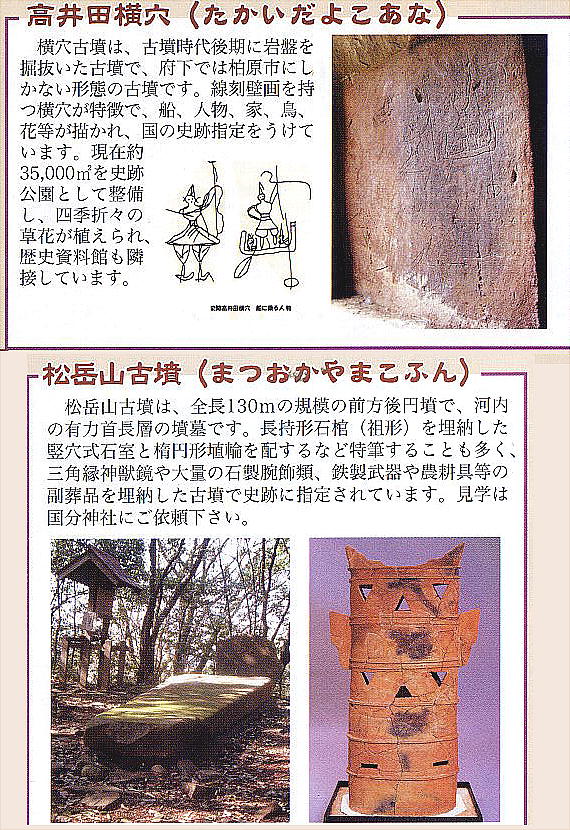 高井田横穴（たかいだよこあな）
横穴古墳は、古墳時代後期に岩盤を
掘抜いた古墳で、府下では柏原市にし
かない形態の古墳です。線刻壁画を持
つ横穴が特徴で、船、人物、家、鳥、
花等が描かれ、国の史跡指定をうけて
います。現在約
35,000㎡を史跡
公園として整備
し、四季折々の
草花が植えられ、
歴史資料館も隣
接しています。
史跡高井田横穴　船に乗る人物
松岳山古墳（まつおかやまこふん）
松岳山古墳は、全長130mの規模の前方後円墳で、河内
の有力首長層の墳墓です。長持形石棺（祖形）を埋納した
竪穴式石室と楕円形埴輪を配するなど特筆することも多く、
三角縁神獣鏡や大量の石製腕飾類、鉄製武器や農耕具等の
副葬品を埋納した古墳で史跡に指定されています。見学は
国分神社にご依頼下さい。